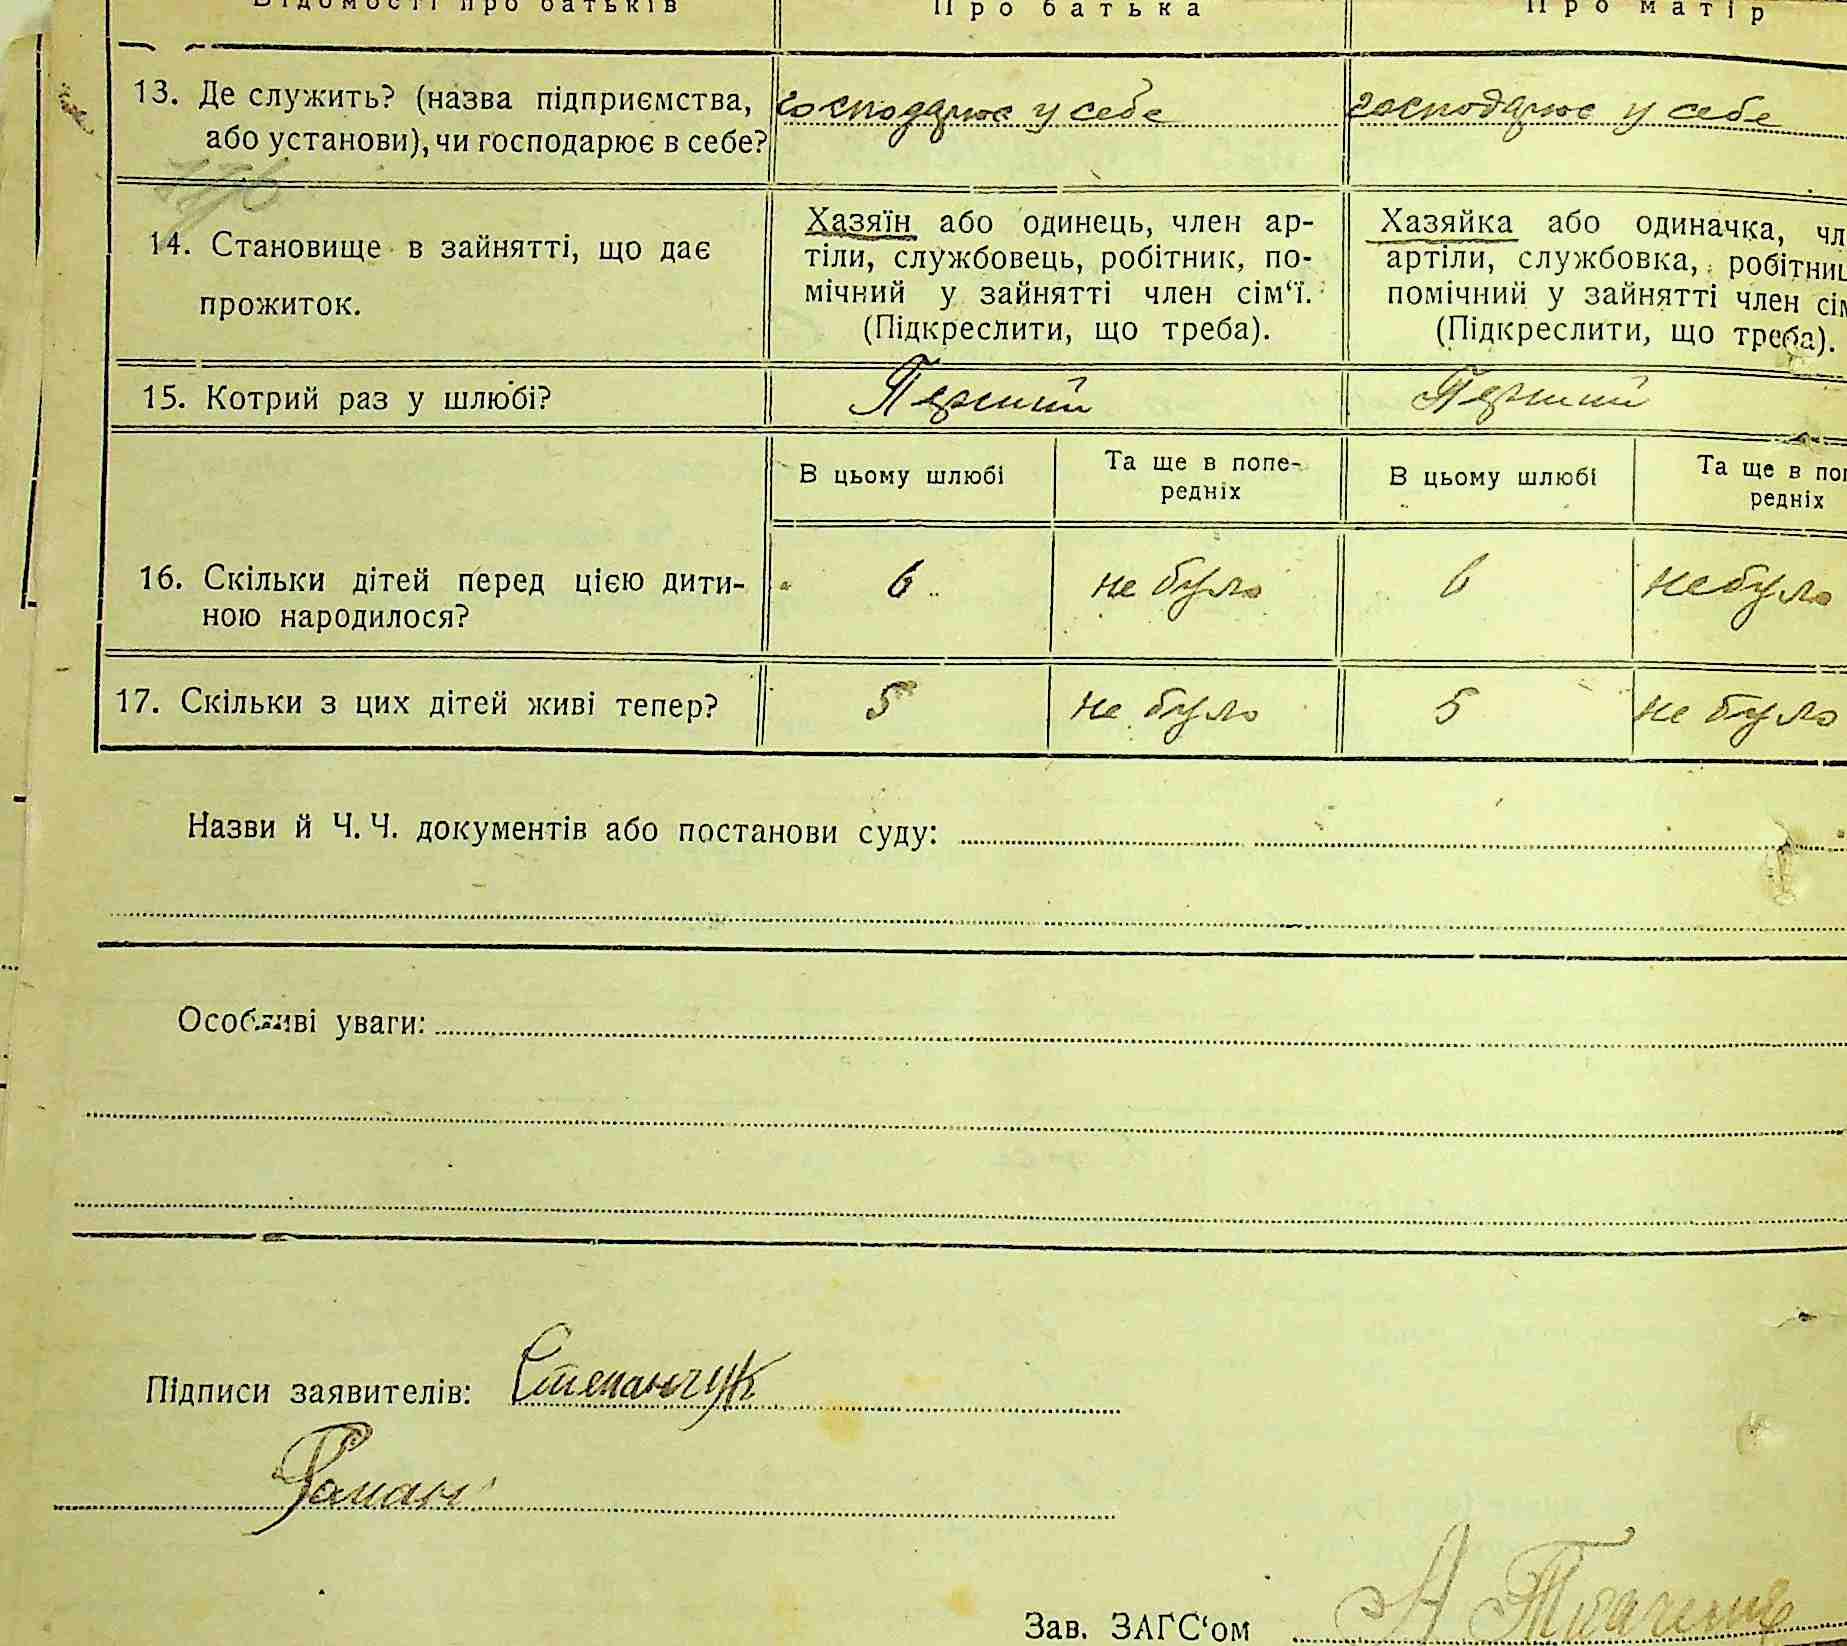 Відомості про батьків Про батька Про матір
13. Де служить? (назва підприємства, господарює у себе господарює у себе
або установи), чи господарює в себе?
14. Становище в зайнятті, що дає
прожиток.
Хазяїн або одинець, член ар-
тіли, службовець, робітник, по-
мічний у зайнятті член сім‘ї.
(Підкреслити, що треба).
Хазяйка або одиначка, чл
артіли, службовка, робітниц
помічний у зайнятті член сім
(Підкреслити, що треба).
15. Котрий раз у шлюбі? Перший Перший
В цьому шлюбі Та ще в попе-
редніх
В цьому шлюбі Та ще в поп
редніх
16. Скільки дітей перед цією дити- 6 не було 6 небуло
ною народилося?
17. Скільки з цих дітей живі тепер? 5 не було 5 не було
Назви й Ч. Ч. документів або постанови суду:
Особливі уваги:
Підписи заявителів: Степанчук
Роман
Зав. ЗАГС‘ом